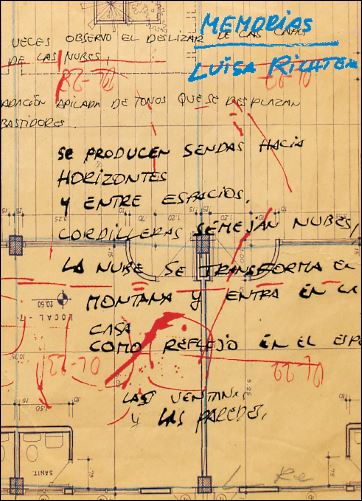 MEMORIAS
LUISA RICHTER
VECES OBSERVO EL DESLIZAR DE LAS CAPAS
DE LAS NUBES,
APILADA DE TONOS QUE SE DESPLAZAN
BASTIDORES
SE PRODUCEN SENDAS HACIA
HORIZONTES
Y ENTRE ESPACIOS.
CORDILLERAS SEMEJAN NUBES,
LA NUBE SE TRANSFORMA EL
MONTAÑA Y ENTRA EN LA
CASA
COMO REFLEJO EN EL ESP
LAS VENTANAS
Y LAS PAREDES.
LOCAL 7
SANIT.